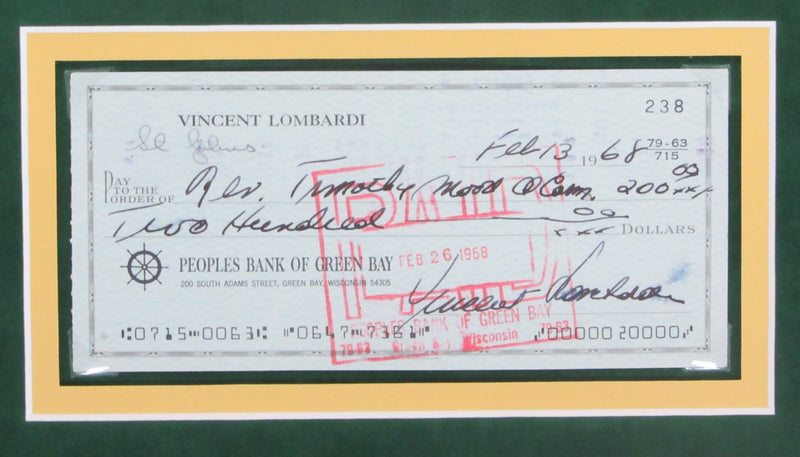 VINCENT LOMBARDI
238
St Johns
Feb 13 1968
79-63
715
PAY TO THE ORDER OF Rev. Timothy 200 00 xxx
Two Hundred 00 xxx DOLLARS
PEOPLES BANK OF GREEN BAY
200 SOUTH ADAMS STREET, GREEN BAY, WISCONSIN 54305
PAID
FEB 26 1968
Vincent Lombardi
PEOPLES BANK OF GREEN BAY
79-63 Green Bay, Wisconsin 79-63
⑆0715⑉0063⑆ ⑈0647⑉7361⑈ ⑇0000020000⑇